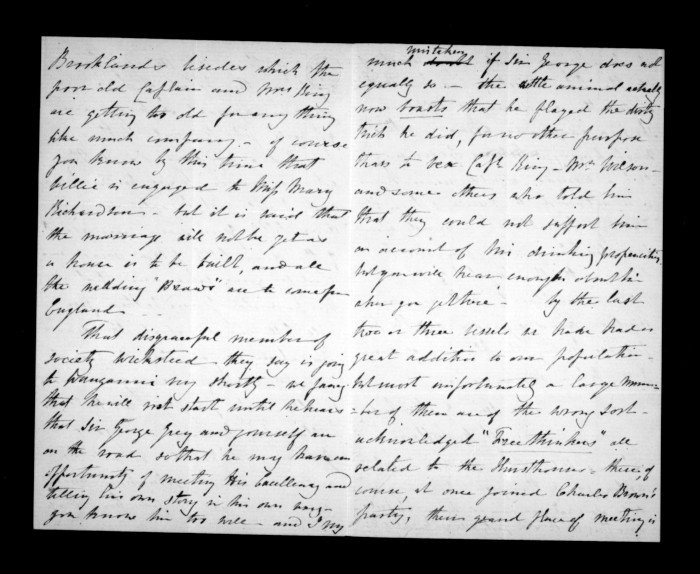 Brooklands besides which the
poor old Captain and Mrs King
are getting too old for any thing
like much company - of course
you know by this time that
Willie is engaged to Miss Mary
Richardson - but it is said that
the marriage will not be yet as
a house is to be built, and all
the wedding "Braws" are to come from
England
That disgraceful member of
society Wicksteed they say is going
to Wanganui very shortly - we fancy
that he will not start until he hears
that Sir George Grey and yourself are
on the road so that he may have an
opportunity of meeting His Excellency and
telling his own story in his own way -
you know him too well - and I am
much mistaken if Sir George does not
equally so - the little animal actually
now boasts that he played the dirty
trick he did, for no other purpose
than to vex Capt King - Mr Wilson -
and some others who told him
that they could not support him
on account of his drinking propensities,
but you will hear enough about him
when you get here - by the last
two or three vessels we have had a
great addition to our population -
but most unfortunately a large num
-ber of them are of the wrong sort -
acknowledged "Freethinkers" all
related to the Hursthouses - these, of
course, at once joined Charles Brown's
party, their grand place of meeting is